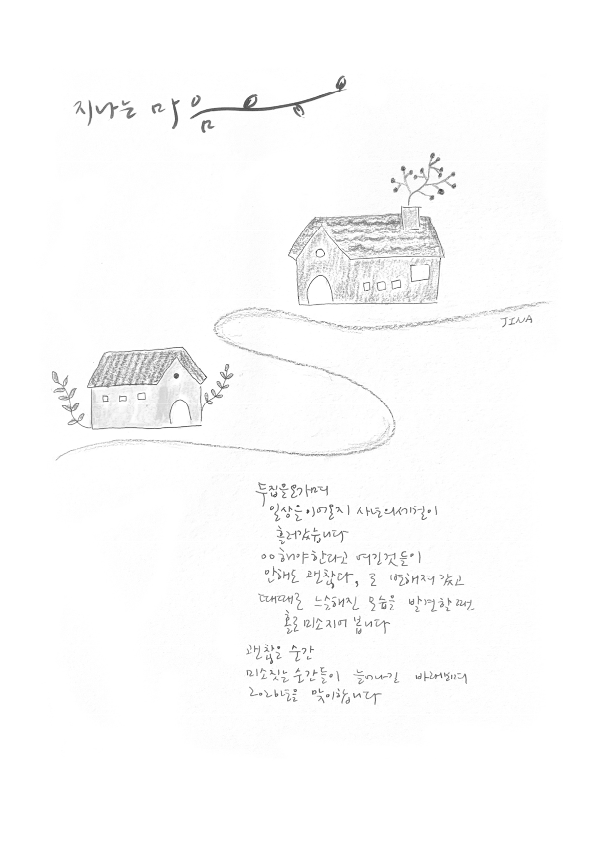 지나는 마음
JINA
두집을오가며
일상을이어온지 사년의세월이
흘러갔습니다
00해야한다고 여긴것들이
안해도 괜찮다, 로 변해져갔고
때때로 느슨해진 모습을 발견할때
홀로미소지어 봅니다
괜찮은 순간
미소짓는순간들이 늘어나길 바래보며
2026년을 맞이합니다